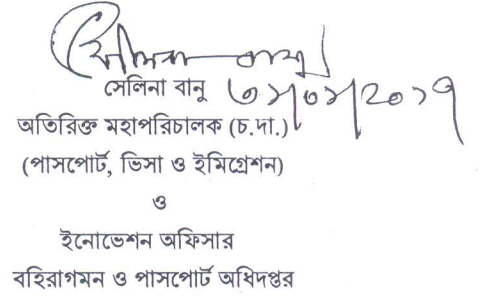 সেলিনা বানু
সেলিনা বানু ৩১/০১/২০১৭
অতিরিক্ত মহাপরিচালক (চ.দা.)
(পাসপোর্ট, ভিসা ও ইমিগ্রেশন)
ও
ইনোভেশন অফিসার
বহিরাগমন ও পাসপোর্ট অধিদপ্তর